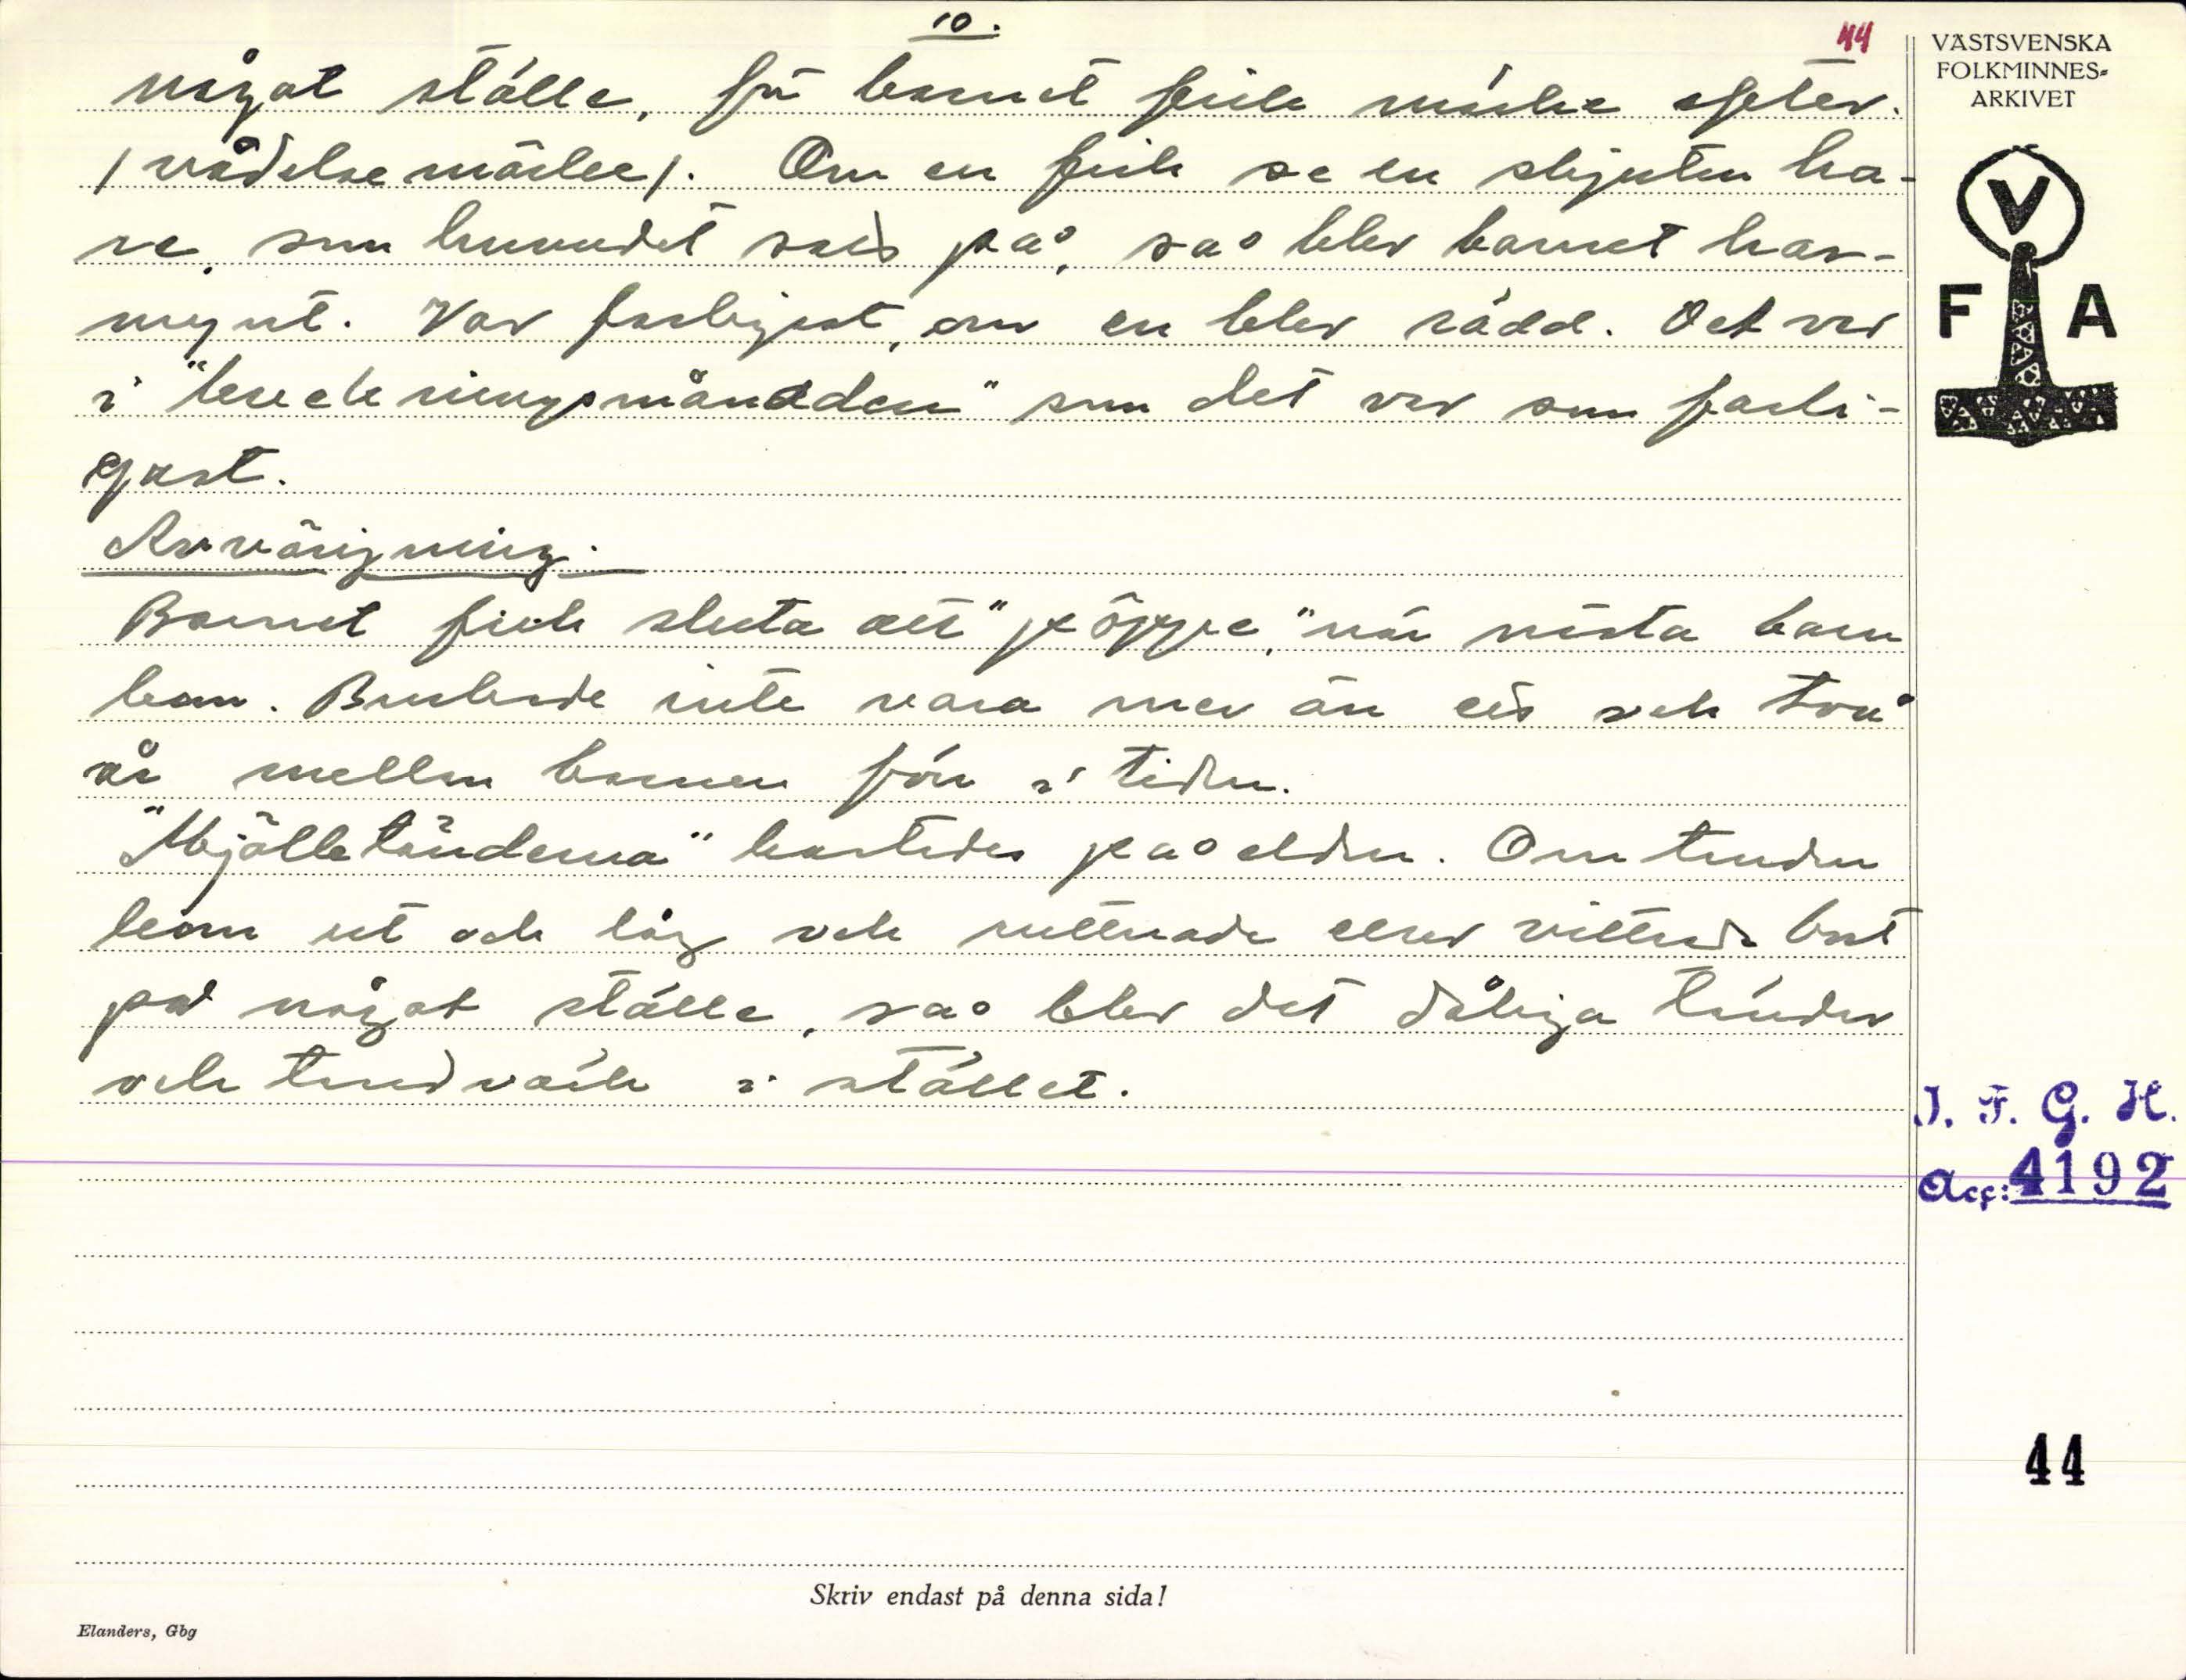 10.
44
något ställe, för barnet fick märke efter.
/vådelsemärke/. Om en fick se en skjuten ha-
re, som huvudet satt på, så blev barnet har-
mynt. Var farligast, om en blev rädd. Det var
i "beredningsmånaden" som det var som farli-
gast.
Avvänjning.
Barnet fick sluta att "pöppe," när nästa barn
kom. Brukade inte vara mer än ett och två
år mellan barnen förr i tiden.
"Mjölketänderna" kastades på elden. Om tanden
kom ut och låg och ruttnade eller vittrade bort
på något ställe, så blev det dåliga tänder
och tandvärk i stället.
VÄSTSVENSKA
FOLKMINNES-
ARKIVET
V
F A
I. F. G. H.
Acc: 4192
44
Skriv endast på denna sida!
Elanders, Gbg